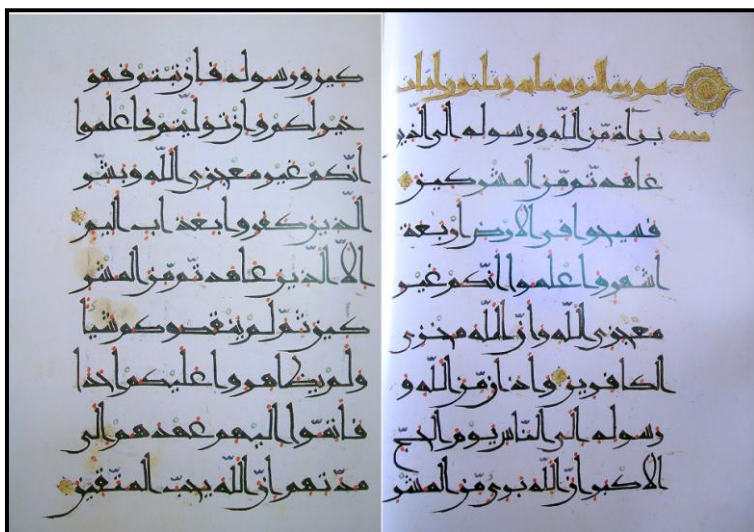 سورة التوبة مايه وثلثون
براة مّن اللّه ورسوله الى الّذين
عاهدتّم مّن المشركين
فسيحوا فى الارض اربعة
اشهر واعلموا انّكم غير
معجزى اللّه وانّ اللّه مخزى
الكافرين واذان مّن اللّه و
رسوله الى النّاس يوم الحجّ
الاكبر انّ اللّه برى مّن المشر
كين ورسوله فان تبتم فهو
خير لكم وان تولّيتم فاعلموا
انّكم غير معجزى اللّه وبشّر
الّذين كفروا بعذاب اليم
الاّ الّذين عاهدتّم مّن المشر
كين ثمّ لم ينقصوكم شيًا
ولم يظاهروا عليكم احدا
فاتمّوا اليهم عهدهم الى
مدّتهم انّ اللّه يحبّ المتّقين